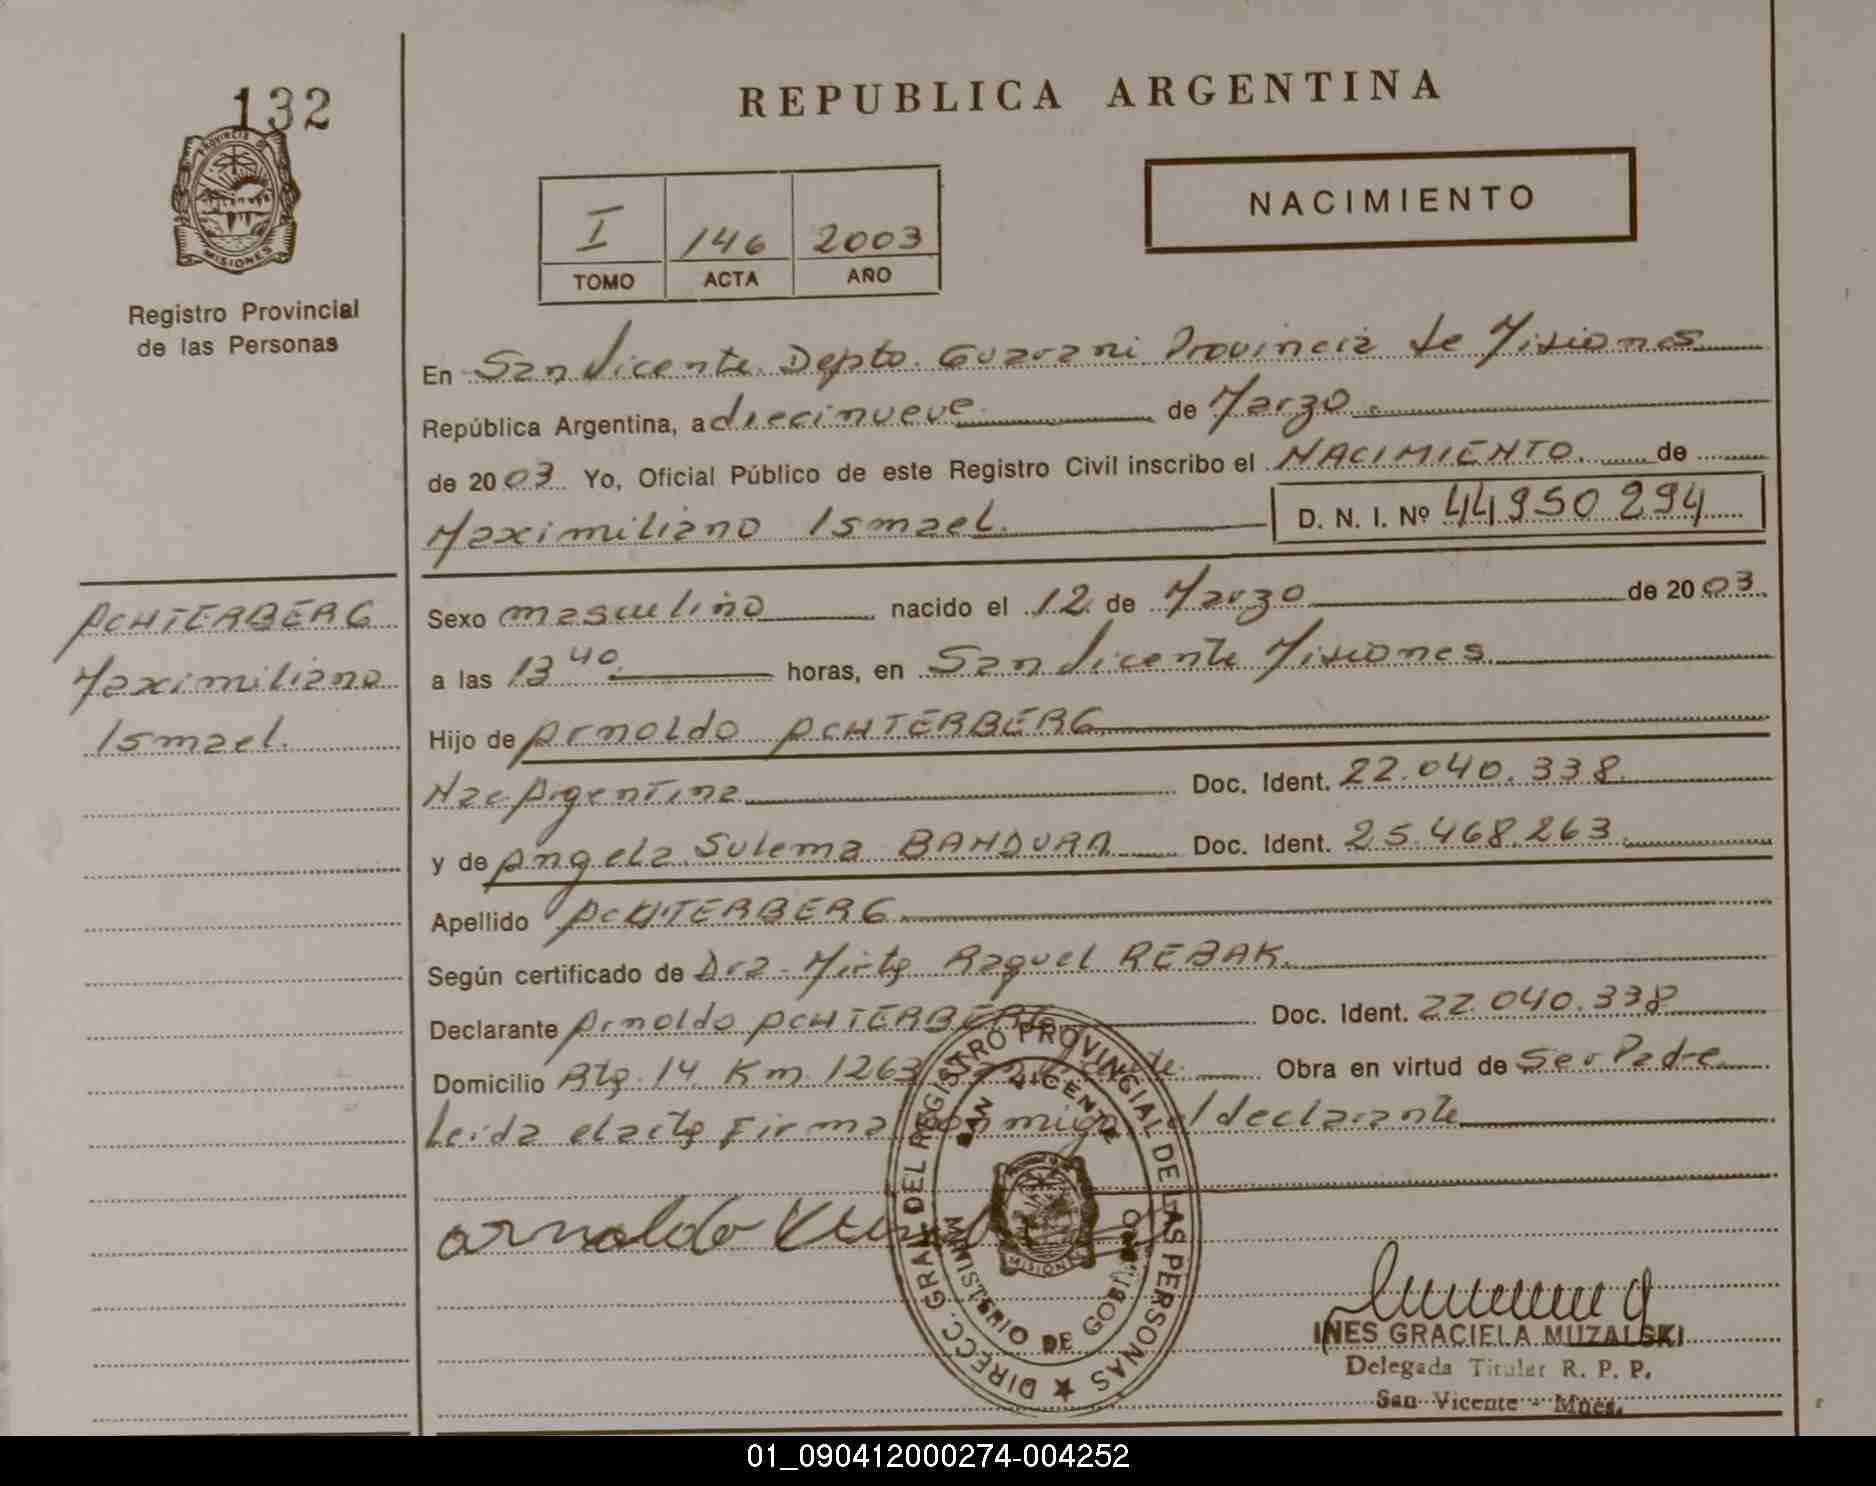 132
PROVINCIA DE
MISIONES
Registro Provincial
de las Personas
REPUBLICA ARGENTINA
I 146 2003
TOMO ACTA AÑO
NACIMIENTO
En San Vicente Depto. Guarani Provincia de Misiones
República Argentina, a diecinueve de Marzo
de 2003 Yo, Oficial Público de este Registro Civil inscribo el NACIMIENTO de
Maximiliano Ismael D. N. I. Nº 44950294
Sexo masculino nacido el 12 de Marzo de 2003
a las 13 40 horas, en San Vicente Misiones
Hijo de Arnoldo ACHTERBERG
Nac Argentina Doc. Ident. 22.040.338
y de Angela Sulema BANDURA Doc. Ident. 25.468.263
Apellido ACHTERBERG
Según certificado de Dra. Mirta Raquel REBAK.
Declarante Arnoldo ACHTERBERG Doc. Ident. 22.040.338
Domicilio Rta. 14 Km 1263 Obra en virtud de Ser Padre
Leida el acta Firma conmigo el declarante
ACHTERBERG
Maximiliano
Ismael.
arnoldo
DIRECC. GRAL. DEL REGISTRO PROVINCIAL DE LAS PERSONAS
SAN VICENTE
MINISTERIO DE GOBIERNO
MISIONES
INES GRACIELA MUZALSKI
Delegada Titular R. P. P.
San Vicente - Mnes.
01_090412000274-004252